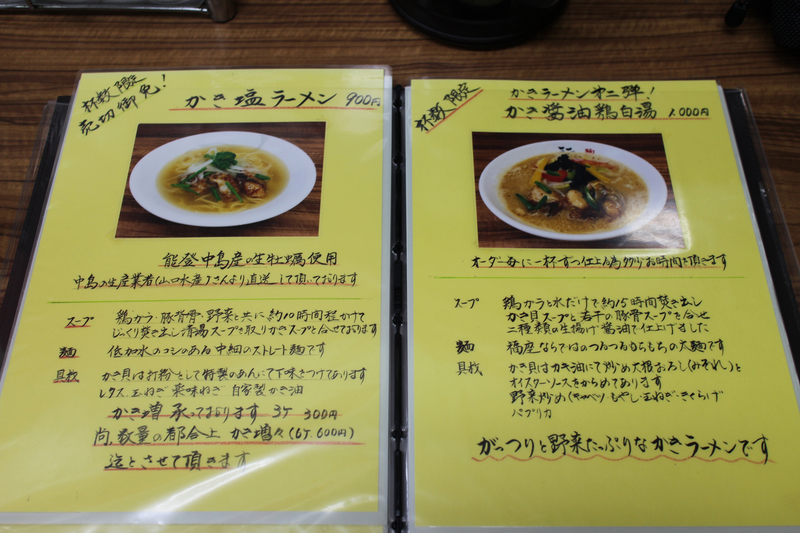 杯数限定
売切御免！
かき塩ラーメン 900円
能登中島産の生牡蠣使用
中島の生産業者(山口水産)さんより直送して頂いております
スープ 鶏ガラ・豚背骨・野菜と共に約10時間程かけて
じっくり焚き出し清湯スープを取りかきスープと合せております
麺 低加水のコシのある中細のストレート麺です
具材 かき貝は打粉をして特製のあんにて下味をつけております
レタス 玉ねぎ 薬味ねぎ 自家製かき油
かき増承っております 3ケ 300円
尚、数量の都合上 かき増々(6ケ 600円)
迄とさせて頂きます
杯数限定
かきラーメン第二弾！
かき醤油鶏白湯 1,000円
オーダー毎に一杯ずつ仕上る為少々お時間を頂きます
スープ 鶏ガラと水だけで約15時間焚き出し
かき貝スープと若干の豚骨スープを合せ
二種類の生揚げ醤油で仕上げました
麺 福座ならではのつるつるもちもちの太麺です
具材 かき貝はかき油にて炒め大根おろし(みぞれ)と
オイスターソースをからめてあります
野菜炒め(キャベツ・もやし・玉ねぎ・きくらげ
パプリカ
がっつりと野菜たっぷりなかきラーメンです